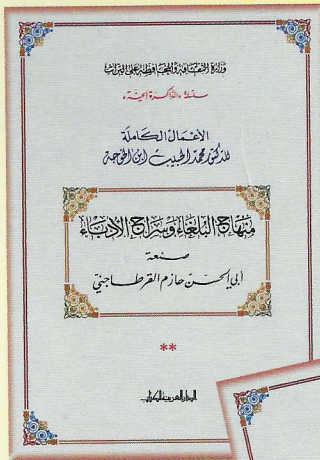 وزارة الثقافة والمحافظة على التراث
سلسلة «الذاكرة الحية»
الأعمال الكاملة
للدكتور محمد الحبيب ابن الخوجة
منهاج البلغاء وسراج الأدباء
صنعة
أبي الحسن حازم القرطاجني
**
الدار العربية للكتاب